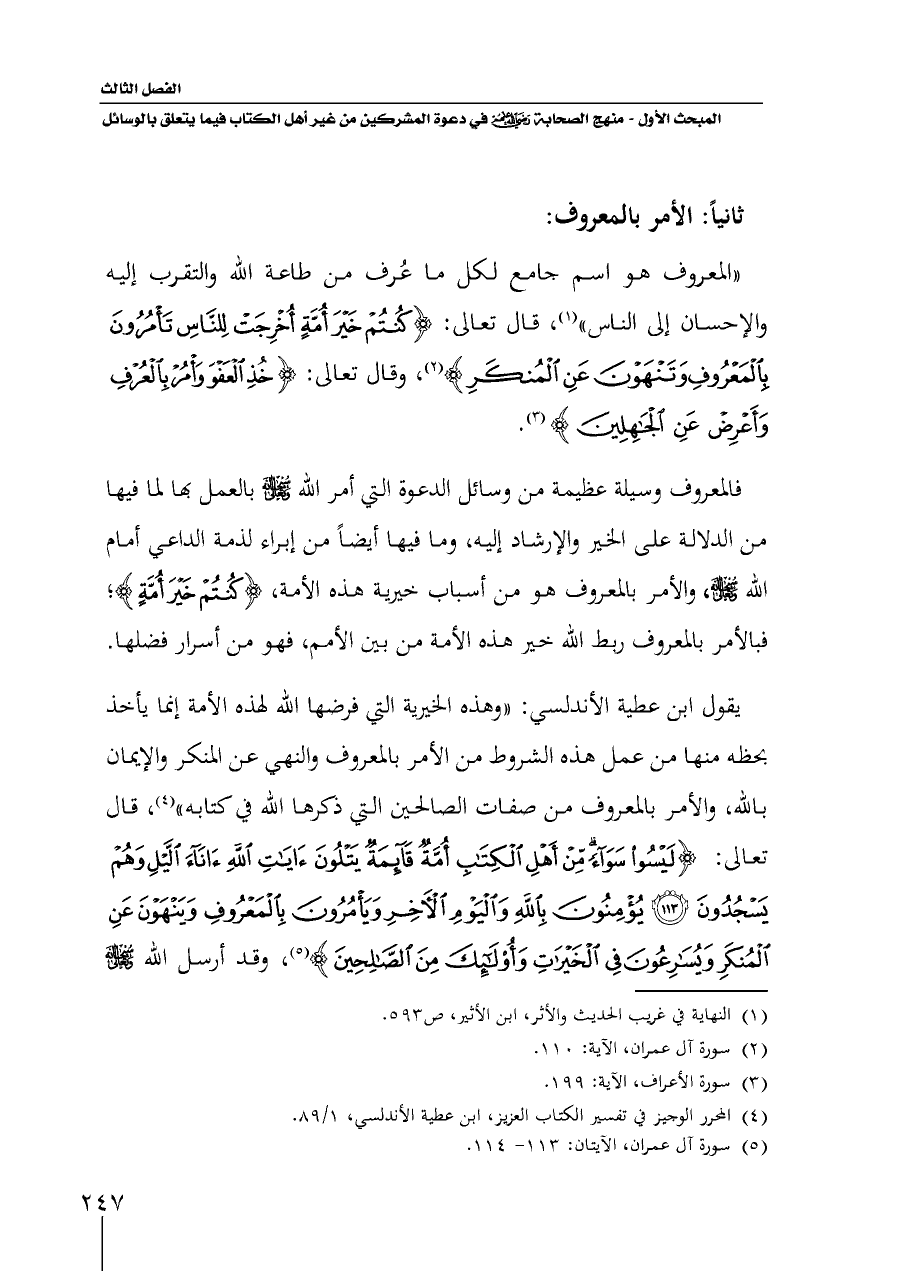 الفصل الثالث
المبحث الأول - منهج الصحابة رضي الله عنهم في دعوة المشركين من غير أهل الكتاب فيما يتعلق بالوسائل
ثانياً: الأمر بالمعروف:
«المعروف هو اسم جامع لكل ما عُرف من طاعة الله والتقرب إليه
والإحسان إلى الناس»(١)، قال تعالى: ﴿كُنتُمْ خَيْرَ أُمَّةٍ أُخْرِجَتْ لِلنَّاسِ تَأْمُرُونَ
بِالْمَعْرُوفِ وَتَنْهَوْنَ عَنِ الْمُنكَرِ﴾(٢)، وقال تعالى: ﴿خُذِ الْعَفْوَ وَأْمُرْ بِالْعُرْفِ
وَأَعْرِضْ عَنِ الْجَاهِلِينَ﴾(٣).
فالمعروف وسيلة عظيمة من وسائل الدعوة التي أمر الله ﷻ بالعمل بها لما فيها
من الدلالة على الخير والإرشاد إليه، وما فيها أيضاً من إبراء لذمة الداعي أمام
الله ﷻ، والأمر بالمعروف هو من أسباب خيرية هذه الأمة، ﴿كُنتُمْ خَيْرَ أُمَّةٍ﴾؛
فبالأمر بالمعروف ربط الله خير هذه الأمة من بين الأمم، فهو من أسرار فضلها.
يقول ابن عطية الأندلسي: «وهذه الخيرية التي فرضها الله لهذه الأمة إنما يأخذ
بحظه منها من عمل هذه الشروط من الأمر بالمعروف والنهي عن المنكر والإيمان
بالله، والأمر بالمعروف من صفات الصالحين التي ذكرها الله في كتابه»(٤)، قال
تعالى: ﴿لَيْسُوا سَوَاءً ۗ مِّنْ أَهْلِ الْكِتَابِ أُمَّةٌ قَائِمَةٌ يَتْلُونَ ءَايَاتِ اللَّهِ ءَانَاءَ اللَّيْلِ وَهُمْ
يَسْجُدُونَ ۝١١٣ يُؤْمِنُونَ بِاللَّهِ وَالْيَوْمِ الْآخِرِ وَيَأْمُرُونَ بِالْمَعْرُوفِ وَيَنْهَوْنَ عَنِ
الْمُنكَرِ وَيُسَارِعُونَ فِي الْخَيْرَاتِ وَأُوْلَٰئِكَ مِنَ الصَّالِحِينَ﴾(٥)، وقد أرسل الله ﷻ
(١) النهاية في غريب الحديث والأثر، ابن الأثير، ص٥٩٣.
(٢) سورة آل عمران، الآية: ١١٠.
(٣) سورة الأعراف، الآية: ١٩٩.
(٤) المحرر الوجيز في تفسير الكتاب العزيز، ابن عطية الأندلسي، ٨٩/١.
(٥) سورة آل عمران، الآيتان: ١١٣- ١١٤.
٢٤٧